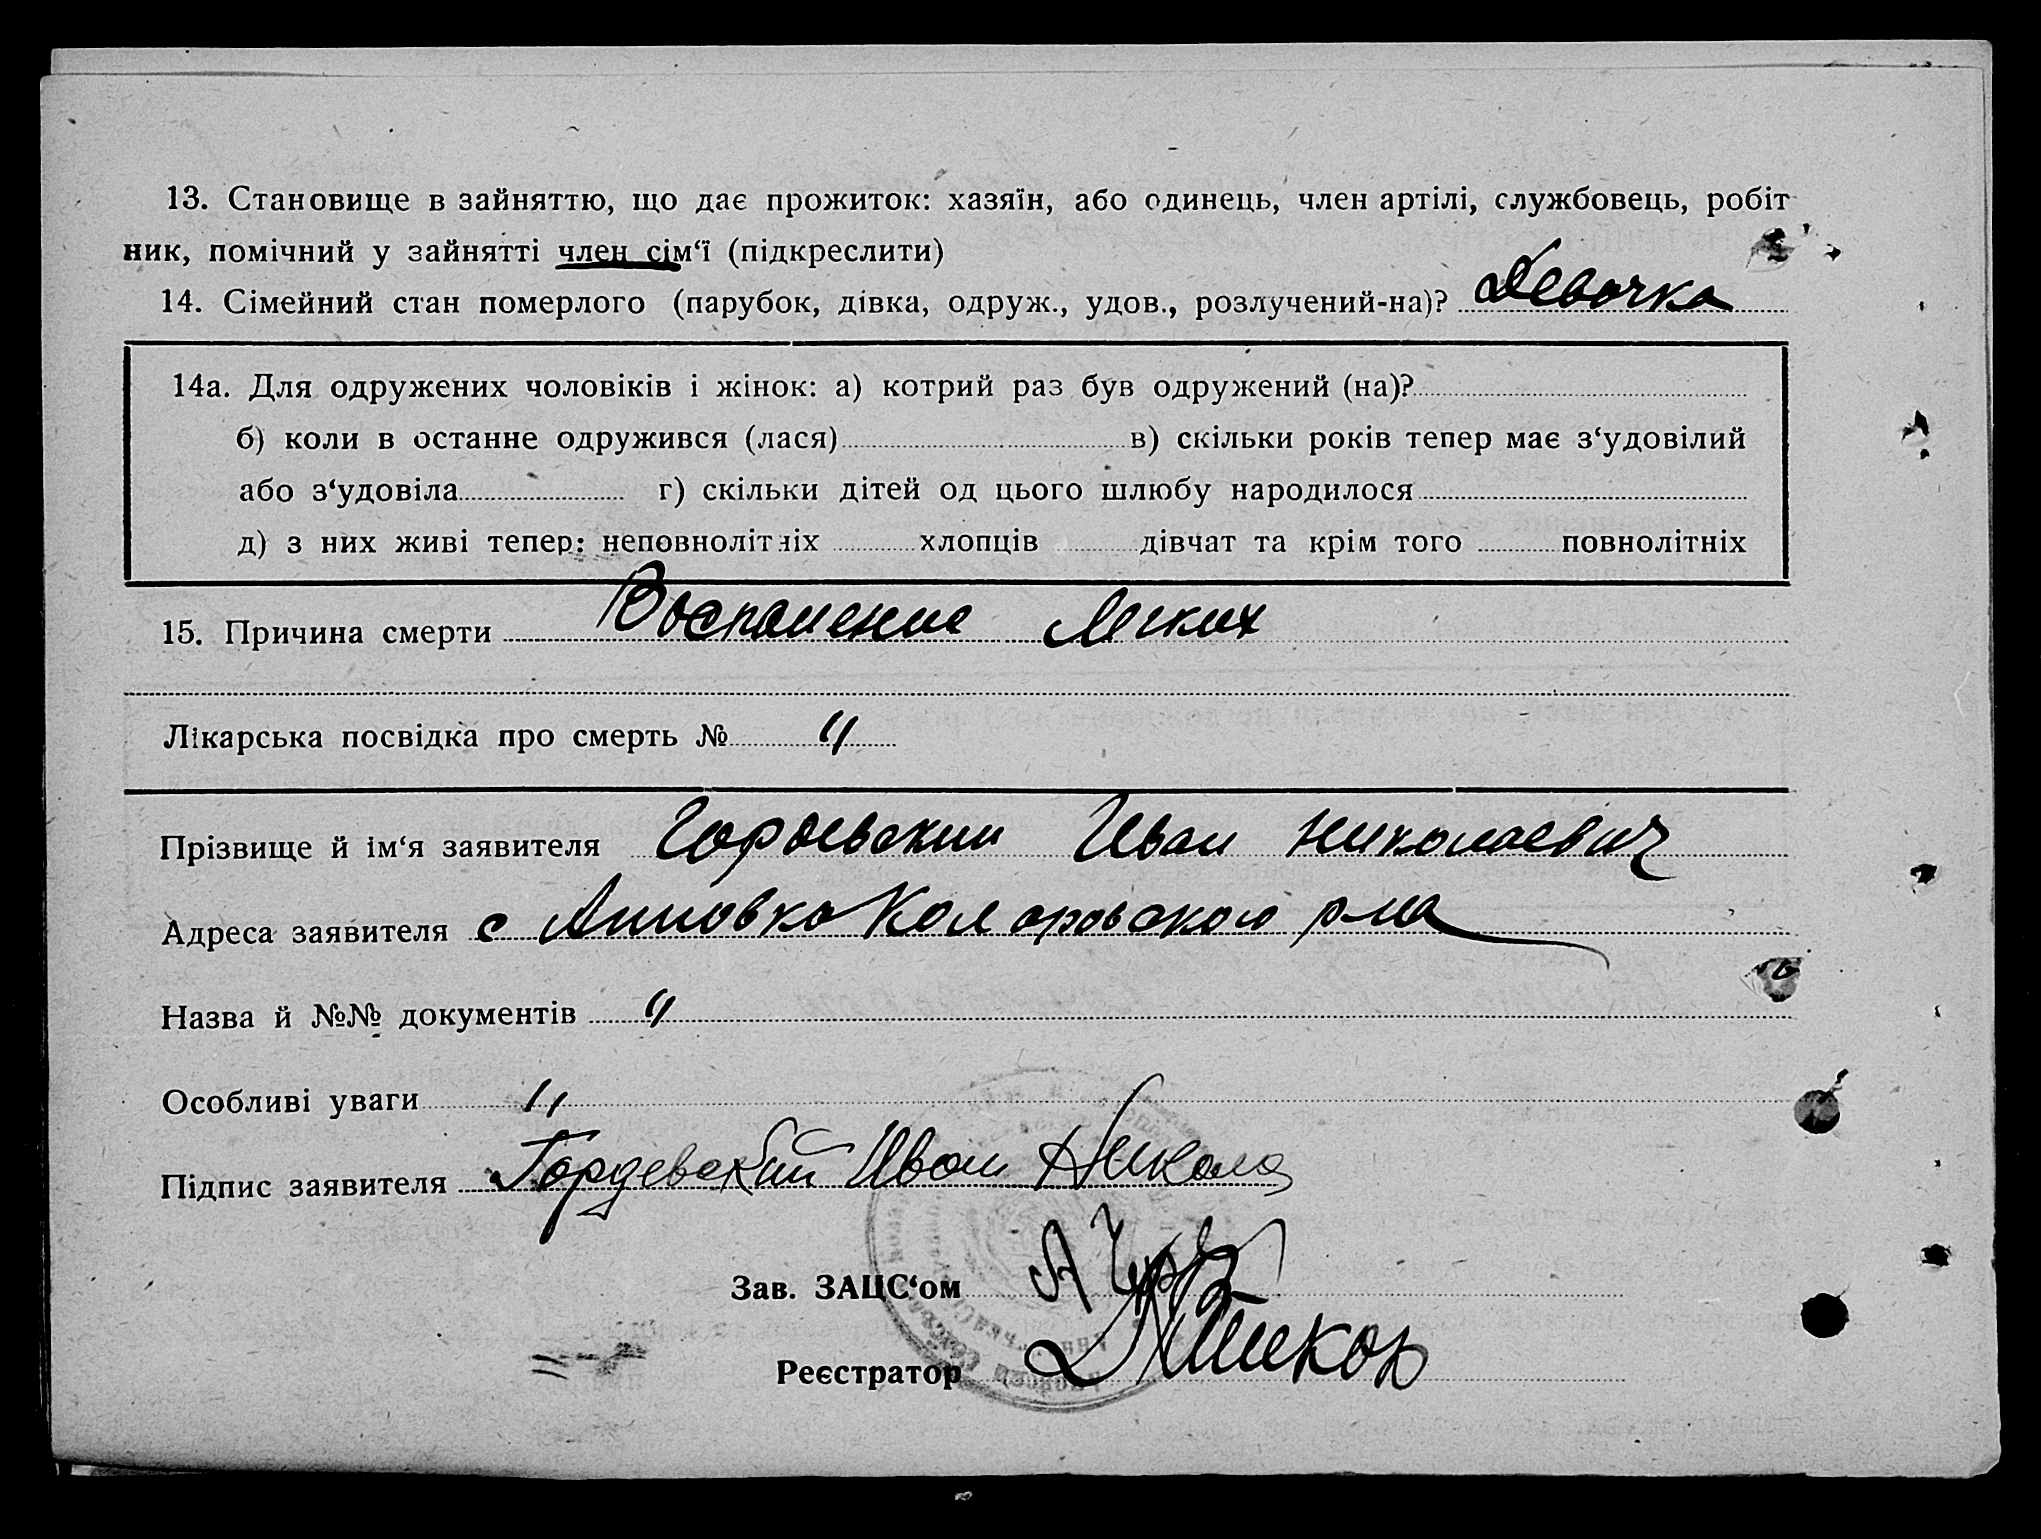 13. Становище в зайняттю, що дає прожиток: хазяїн, або одинець, член артілі, службовець, робіт
ник, помічний у зайнятті член сім‘ї (підкреслити)
14. Сімейний стан померлого (парубок, дівка, одруж., удов., розлучений-на)? Девочка
14а. Для одружених чоловіків і жінок: а) котрий раз був одружений (на)?
б) коли в останне одружився (лася) в) скільки років тепер має з‘удовілий
або з‘удовіла г) скільки дітей од цього шлюбу народилося
д) з них живі тепер: неповнолітніх хлопців дівчат та крім того повнолітніх
15. Причина смерти Воспаление Легких
Лікарська посвідка про смерть № "
Прізвище й ім‘я заявителя Гордевский Иван Николаевич
Адреса заявителя с Анновка Коларовского р-на
Назва й №№ документів "
Особливі уваги "
Підпис заявителя Гордевский Иван Никола
Зав. ЗАЦС‘ом
Реєстратор